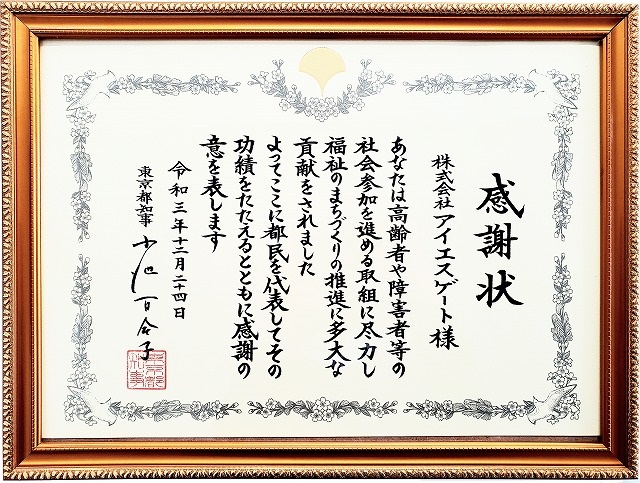 感謝状
株式会社アイエスゲート様
あなたは高齢者や障害者等の
社会参加を進める取組に尽力し
福祉のまちづくりの推進に多大な
貢献をされました
よってここに都民を代表してその
功績をたたえるとともに感謝の
意を表します
令和三年十二月二十四日
東京都知事 小池百合子
東京都知事